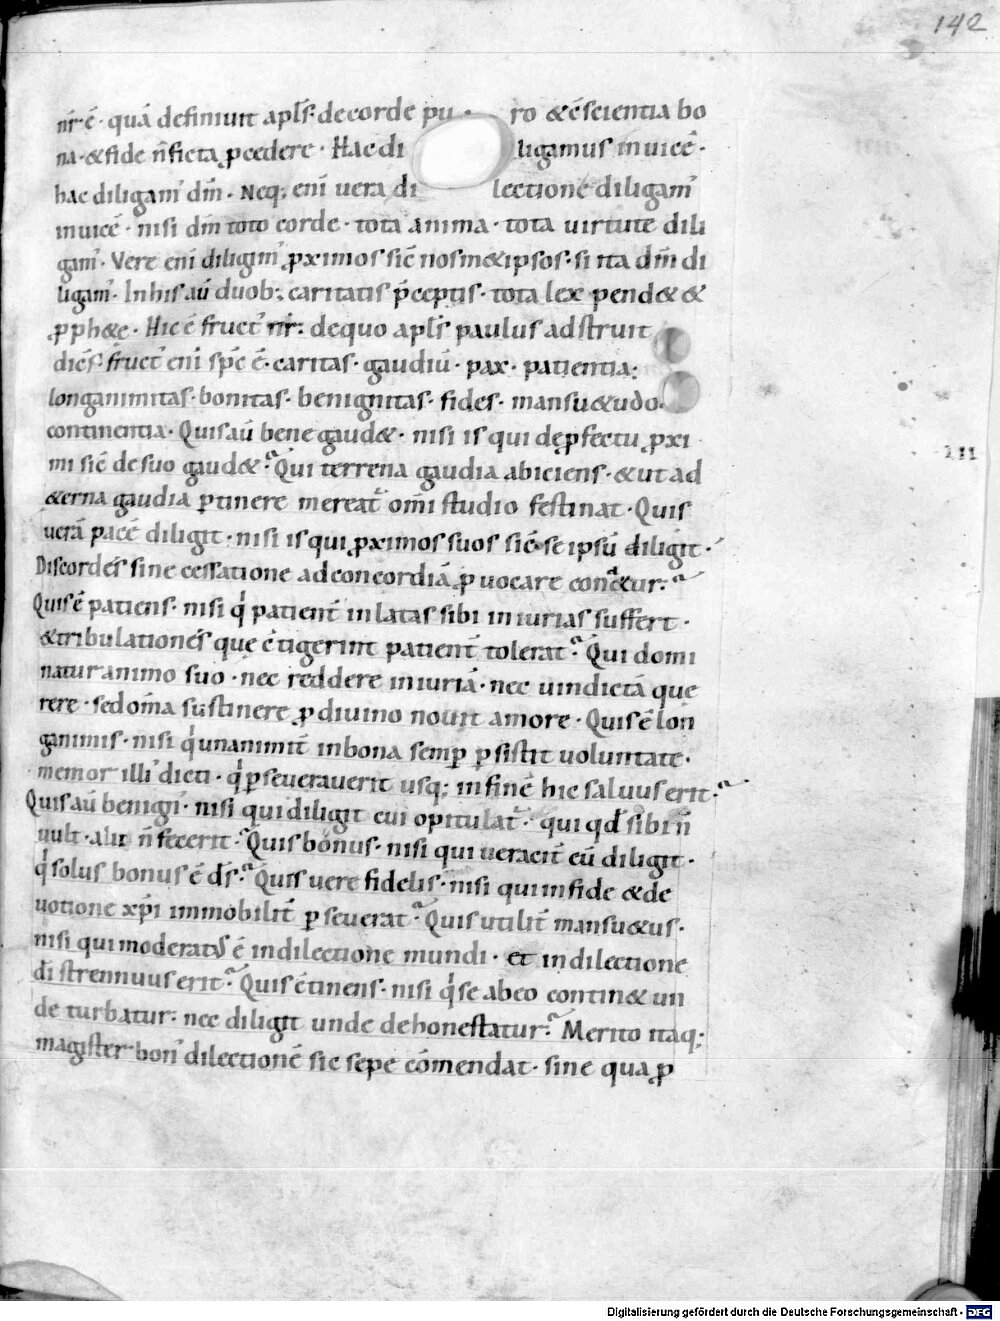 142
nr̄ ē · quā definiuit apl̄s · de corde pu ro & c̄scientia bo
na · & fide n̄ ficta ꝓcedere · Hac di ligamus inuicē ·
hac diligam᾿ dm̄ · Neq; eni᾿ uera di lectione diligam᾿
inuicē · nisi dm̄ toto corde · tota anima · tota uirtute dili
gam᾿ · Vere eni᾿ diligim᾿ ꝓximos sic̄ nosm&ipsos · si ita dm̄ di
ligam᾿ · In his aū duob; caritatis p̄ceptis · tota lex pend& &
ꝓph&e · Hic ē fruct᾿ nr̄ · de quo apl̄s paulus adstruit
dicēs · fruct᾿ eni᾿ sp̄c ē · caritas · gaudiū · pax · patientia ·
longanimitas · bonitas · benignitas · fides · mansu&udo ·
continentia · Quis aū bene gaud& · nisi is qui de ꝓfectu ꝓxi
mi sic̄ de suo gaud& ? Qui terrena gaudia abiciens · & ut ad
&erna gaudia ꝑtinere mereat᾿ omi᾿ studio festinat · Quis
uerā pacē diligit · nisi is qui ꝓximos suos sic̄ se ipsū diligit ·
Discordes sine cessatione ad concordiā ꝓuocare conatur ?
Quis ē patiens · nisi q᾿ patient̄ inlatas sibi iniurias suffert ·
& tribulationes que c̄tigerint patient̄ tolerat ? Qui domi
natur animo suo · nec reddere iniuriā · nec uindictā que
rere · sed om̄a sustinere ꝓ diuino nouit amore · Quis ē lon
ganimis · nisi q᾿ unanimit̄ in bona semꝑ ꝑsistit uoluntate ·
memor illi᾿ dicti · q᾿ ꝑseuerauerit usq; in finē hic saluus erit ?
Quis aū benign᾿ · nisi qui diligit cui opitulat᾿ · qui qd̄ sibi n̄
uult · alii n̄ fecerit ? Quis bonus · nisi qui ueracit̄ eū diligit ·
q᾿ solus bonus ē d̄s ? Quis uere fidelis · nisi qui in fide & de
uotione xp̄i immobilit̄ ꝑseuerat ? Quis utilit̄ mansu&us ·
nisi qui moderat᾿ ē in dilectione mundi · et in dilectione
dī strennuus erit ? Quis c̄tinens · nisi q᾿ se ab eo contin& un
de turbatur · nec diligit unde dehonestatur ? Merito itaq;
magister bon᾿ dilectionē sic sepe cōmendat · sine qua ꝓ
Digitalisierung gefördert durch die Deutsche Forschungsgemeinschaft - DFG